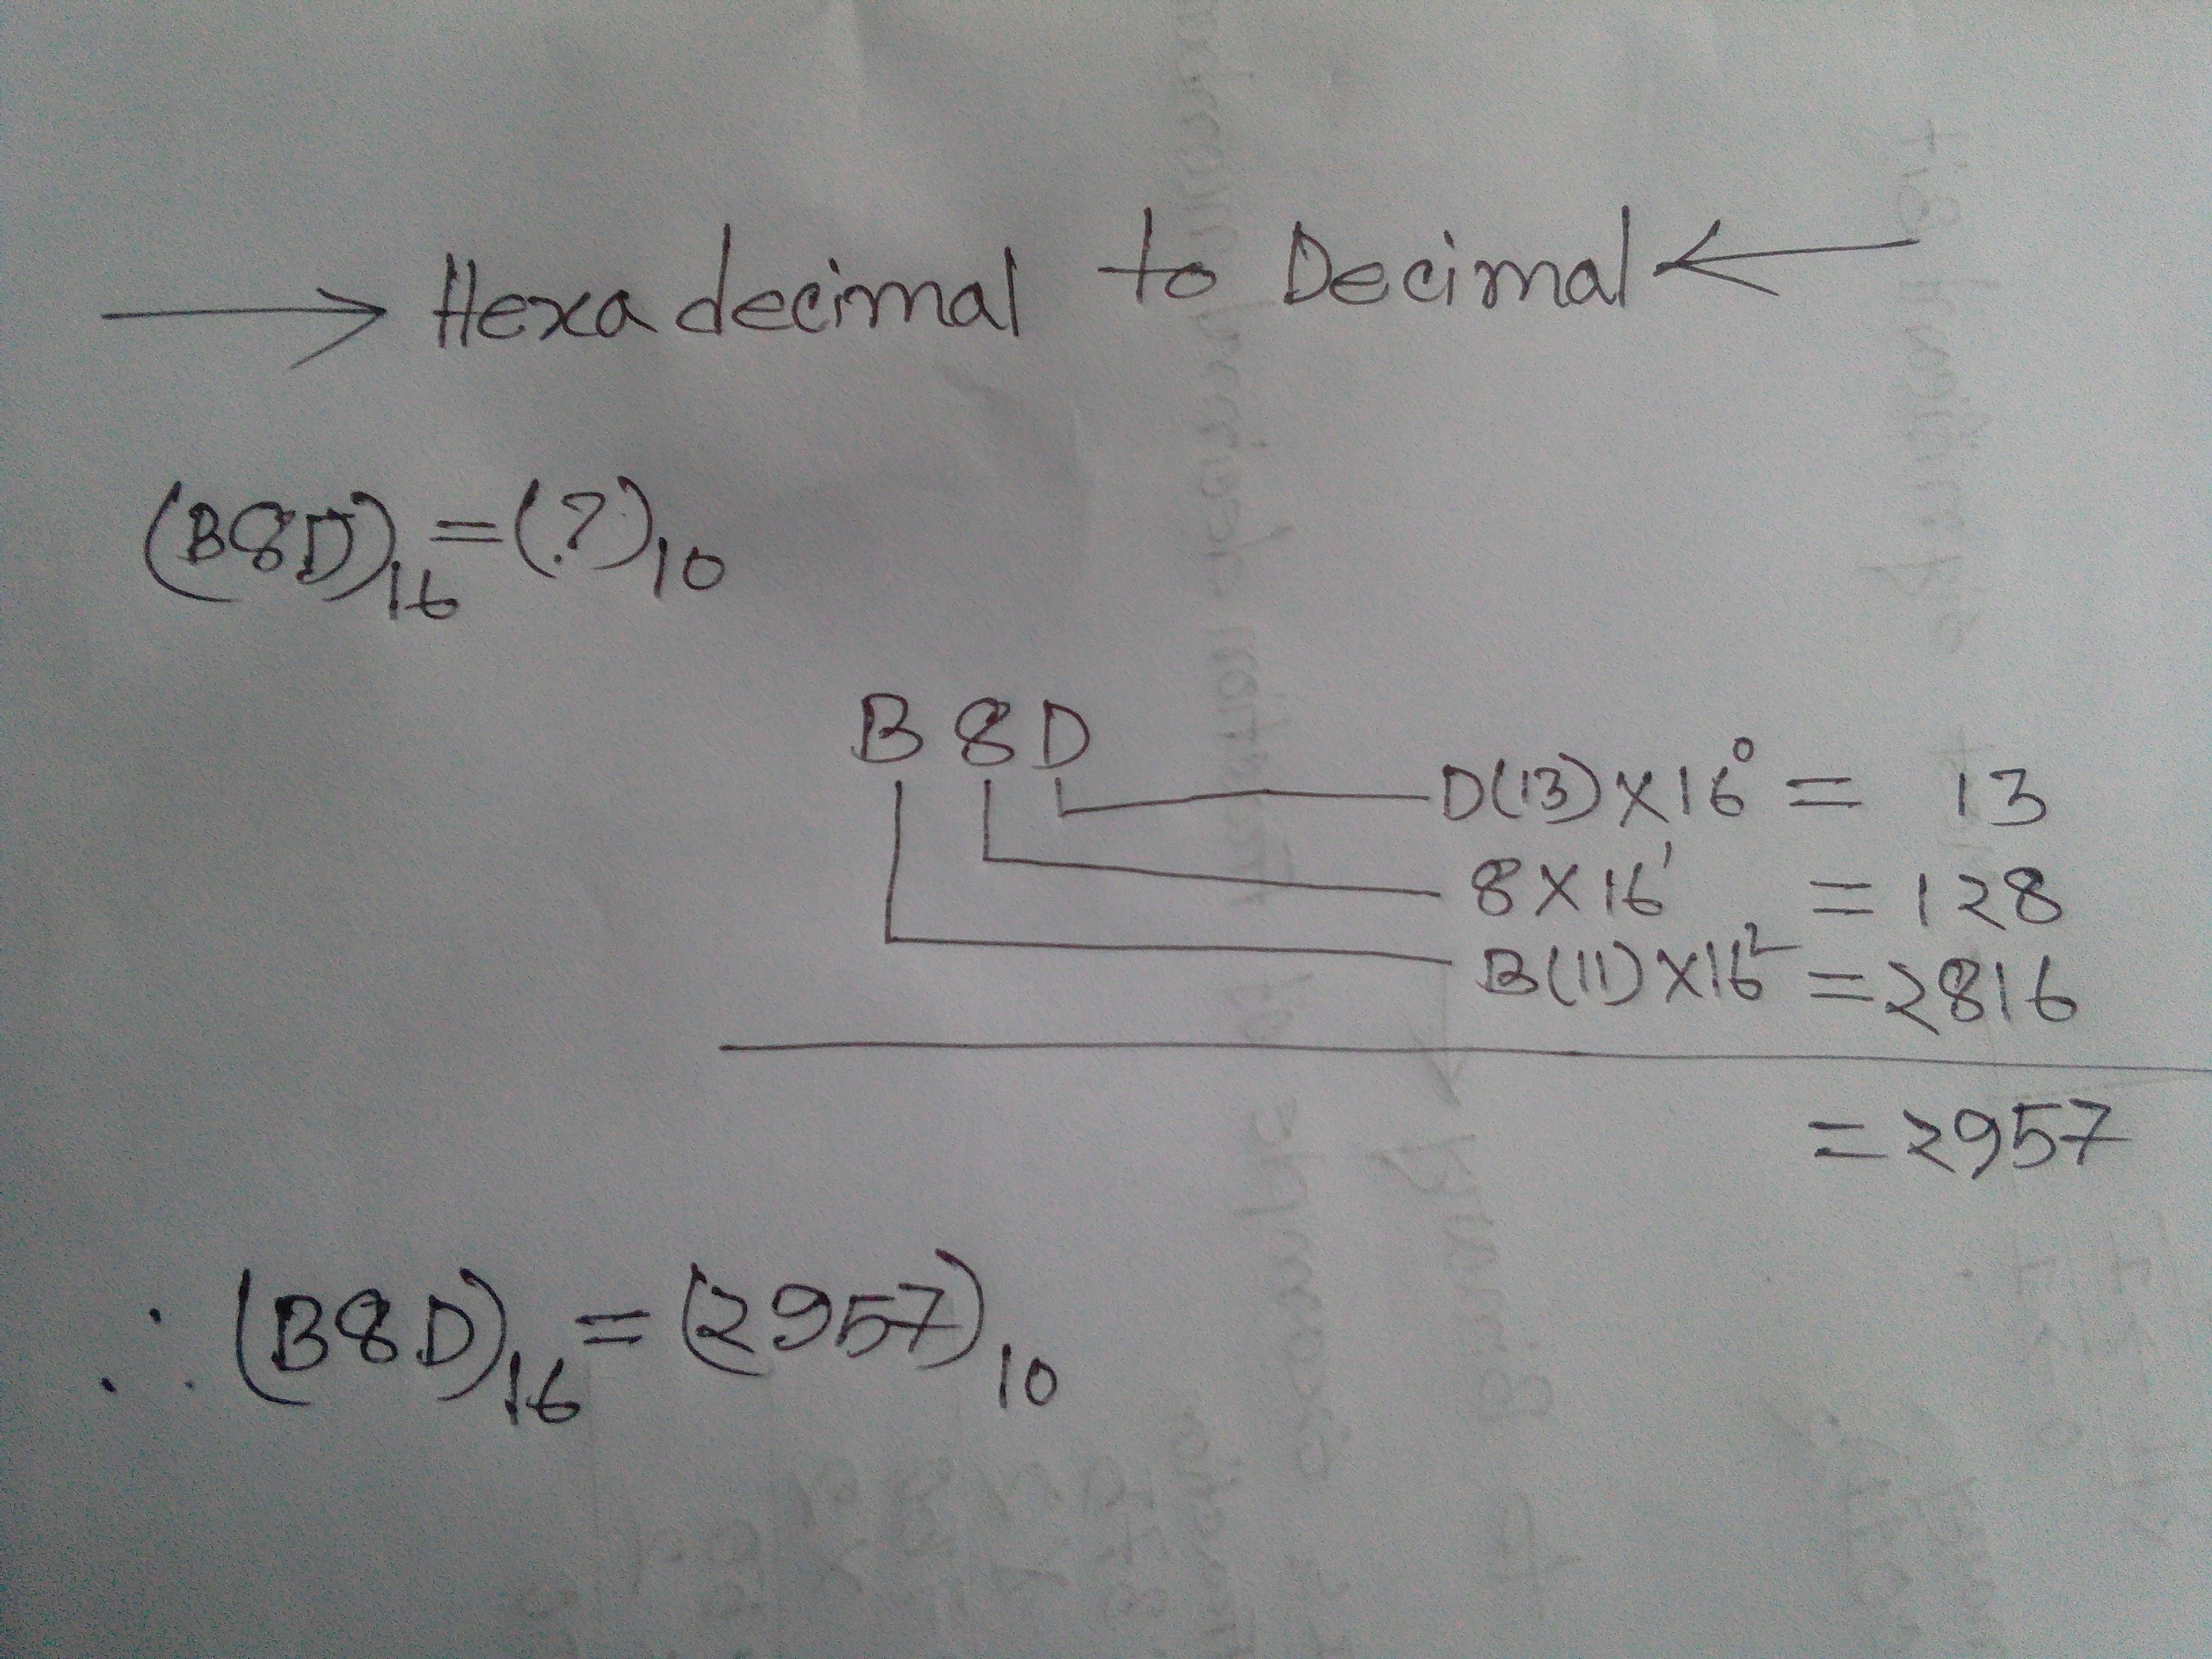 → Hexadecimal to Decimal ←
(B8D)₁₆ = (?)₁₀
B 8 D
D(13) × 16⁰ = 13
8 × 16¹ = 128
B(11) × 16² = 2816
= 2957
∴ (B8D)₁₆ = (2957)₁₀